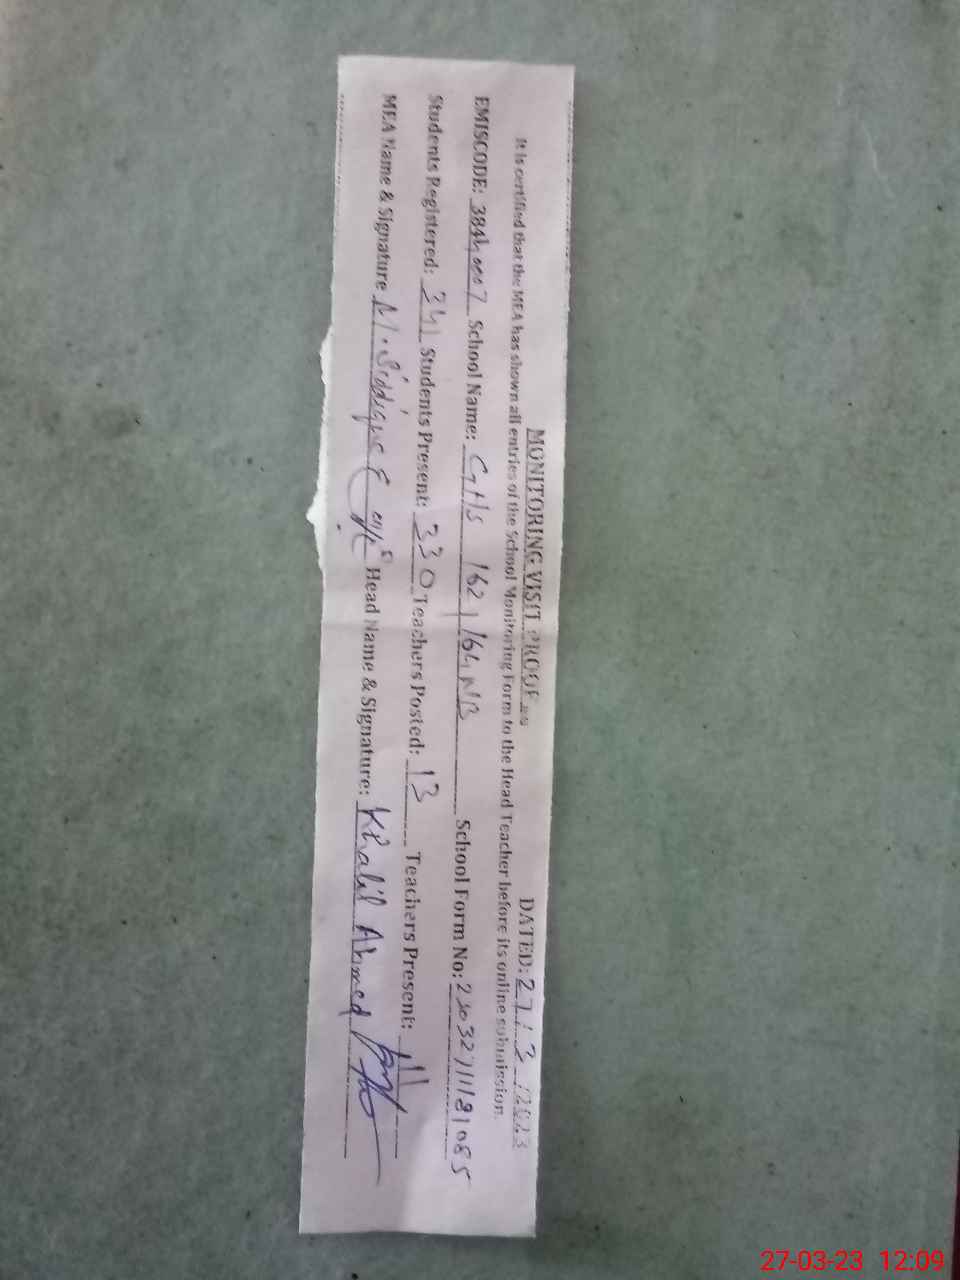 MONITORING VISIT PROOF DATED: 27/3/2023
It is certified that the MEA has shown all entries of the School Monitoring Form to the Head Teacher before its online submission.
EMISCODE: 38440007 School Name: GHS 162/164 NB School Form No:
Students Registered: 341 Students Present: 330 Teachers Posted: 13 Teachers Present: 11
MEA Name & Signature M. Siddique Head Name & Signature: Khalil Ahmed
27-03-23 12:09